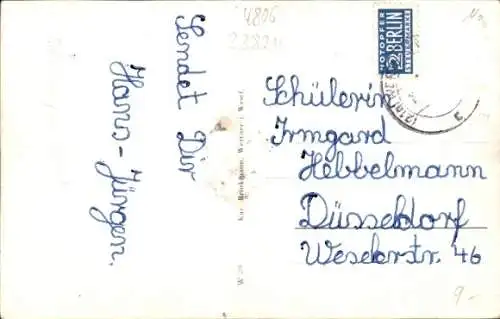 Sendet Dir
Hans-Jürgen.
4806
NOTOPFER
2 BERLIN
STEUERMARKE
Schülerin
Irmgard
Hebbelmann
Düsseldorf
Weselerstr. 46
9.-